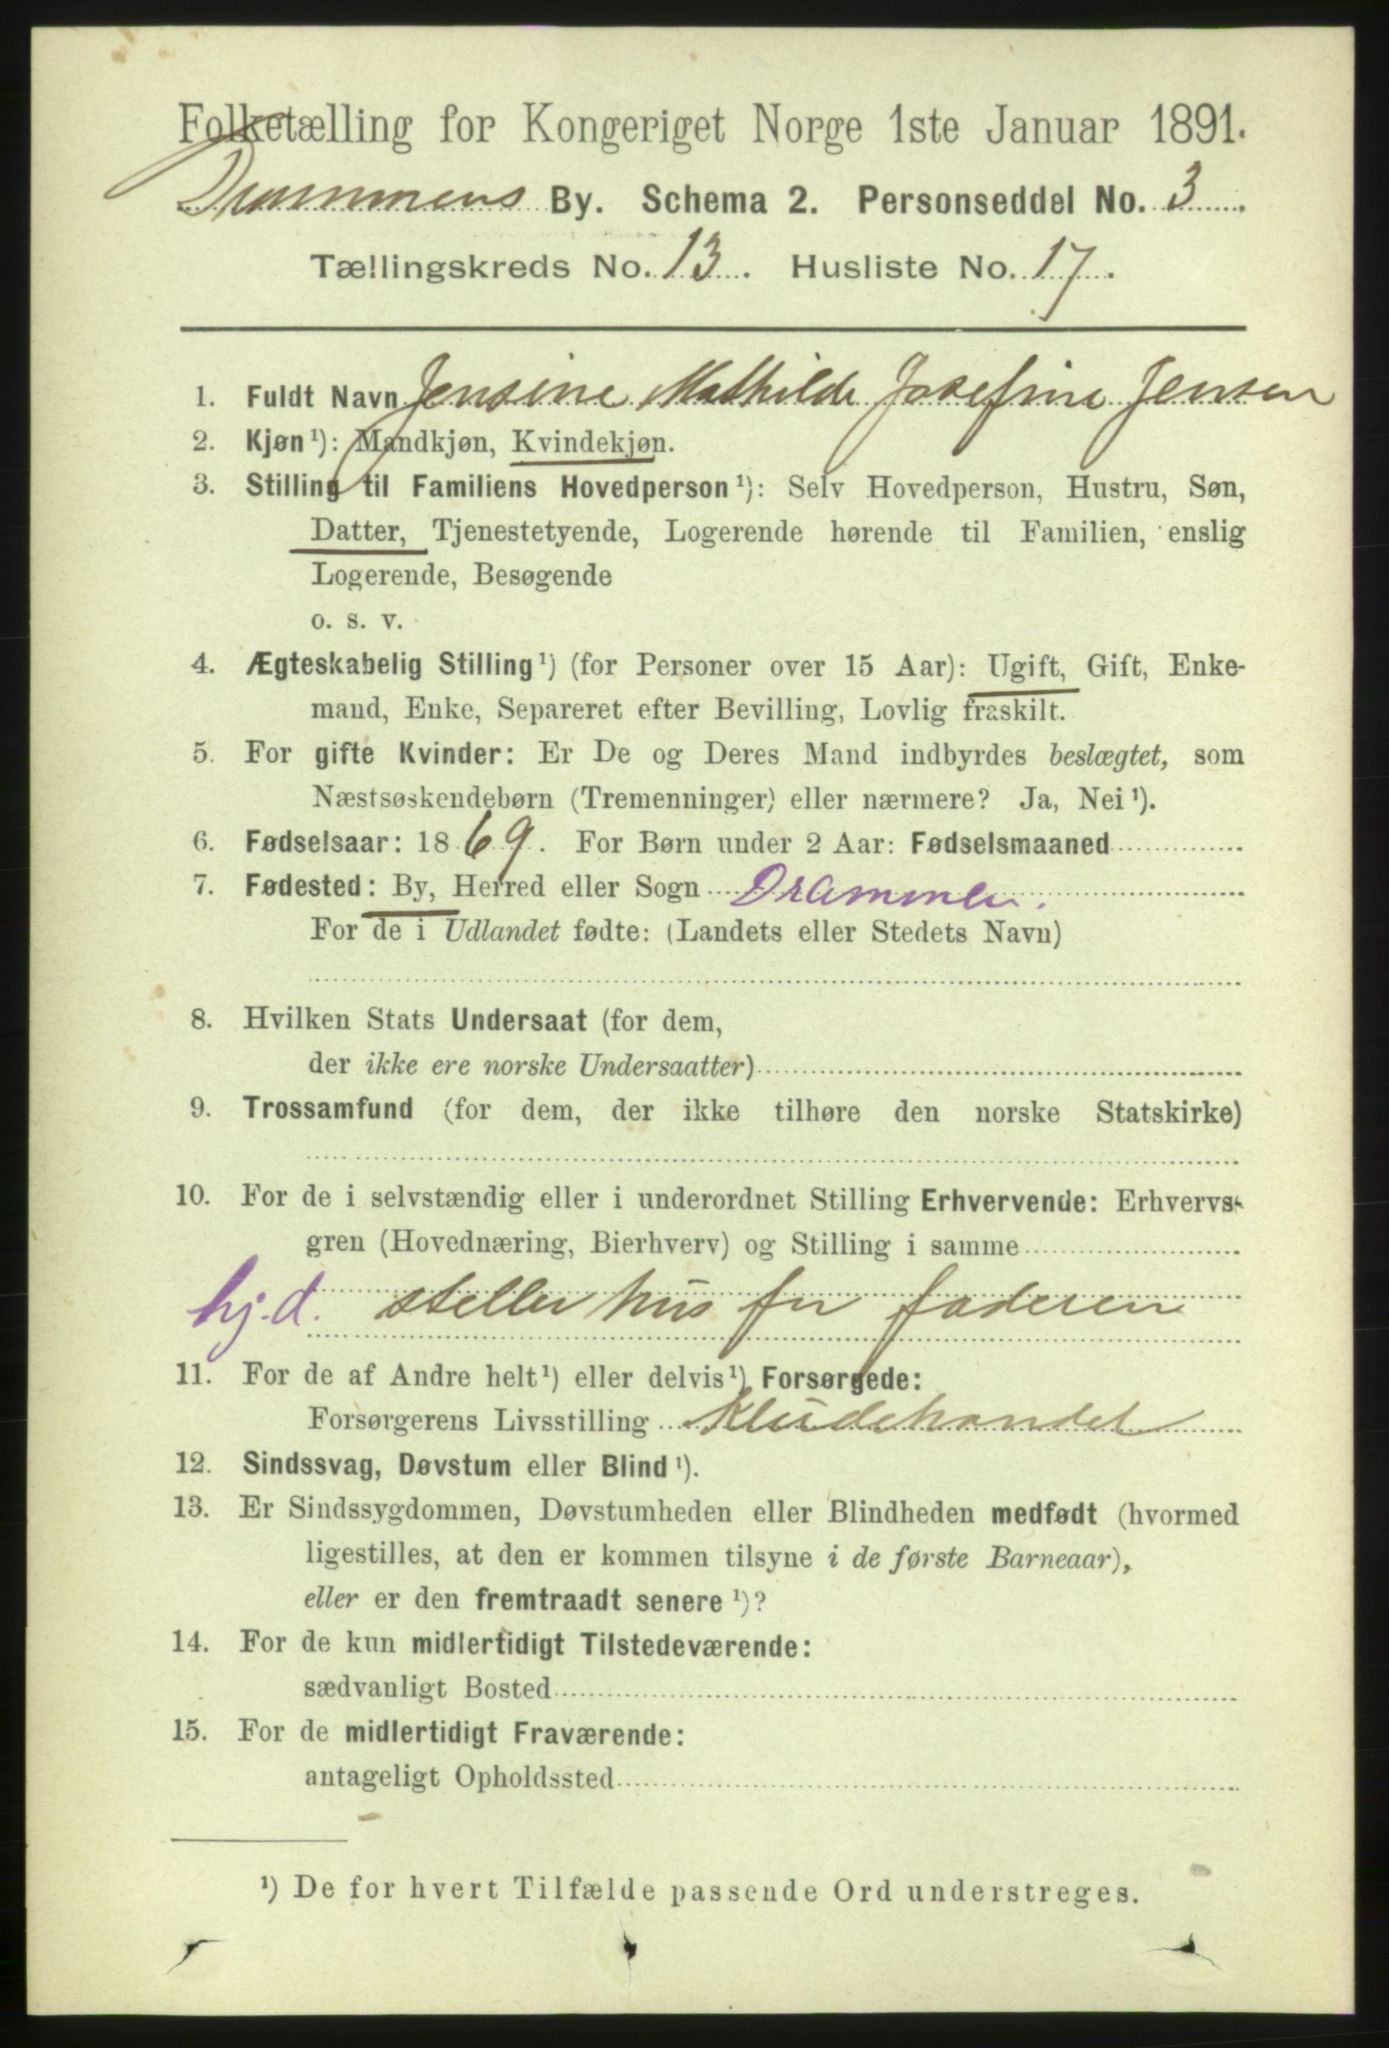 Folketælling for Kongeriget Norge 1ste Januar 1891.
Drammens By. Schema 2. Personseddel No. 3
Tællingskreds No. 13. Husliste No. 17.
1. Fuldt Navn Jensine Mathilde Josefine Jensen
2. Kjøn¹): Mandkjøn, Kvindekjøn.
3. Stilling til Familiens Hovedperson¹): Selv Hovedperson, Hustru, Søn,
Datter, Tjenestetyende, Logerende hørende til Familien, enslig
Logerende, Besøgende
o. s. v.
4. Ægteskabelig Stilling¹) (for Personer over 15 Aar): Ugift, Gift, Enke-
mand, Enke, Separeret efter Bevilling, Lovlig fraskilt.
5. For gifte Kvinder: Er De og Deres Mand indbyrdes beslægtet, som
Næstsøskendebørn (Tremenninger) eller nærmere? Ja, Nei¹).
6. Fødselsaar: 1869. For Børn under 2 Aar: Fødselsmaaned
7. Fødested: By, Herred eller Sogn Drammen.
For de i Udlandet fødte: (Landets eller Stedets Navn)
8. Hvilken Stats Undersaat (for dem,
der ikke ere norske Undersaatter)
9. Trossamfund (for dem, der ikke tilhøre den norske Statskirke)
10. For de i selvstændig eller i underordnet Stilling Erhvervende: Erhvervs-
gren (Hovednæring, Bierhverv) og Stilling i samme
hj.d. steller hus for faderen
11. For de af Andre helt¹) eller delvis¹) Forsørgede:
Forsørgerens Livsstilling Kludehandel
12. Sindssvag, Døvstum eller Blind¹).
13. Er Sindssygdommen, Døvstumheden eller Blindheden medfødt (hvormed
ligestilles, at den er kommen tilsyne i de første Barneaar),
eller er den fremtraadt senere¹)?
14. For de kun midlertidigt Tilstedeværende:
sædvanligt Bosted
15. For de midlertidigt Fraværende:
antageligt Opholdssted
¹) De for hvert Tilfælde passende Ord understreges.